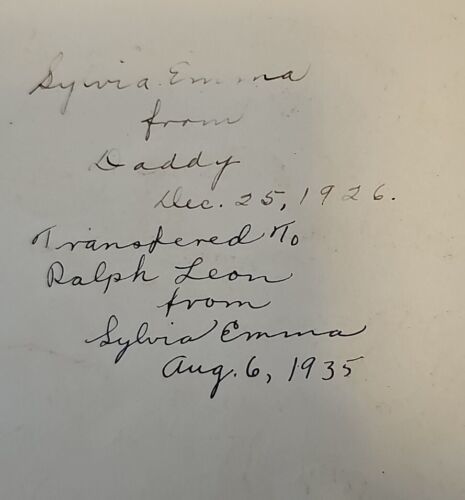 Sylvia Emma
from
Daddy
Dec. 25, 1926.
Transfered To
Ralph Leon
from
Sylvia Emma
Aug. 6, 1935